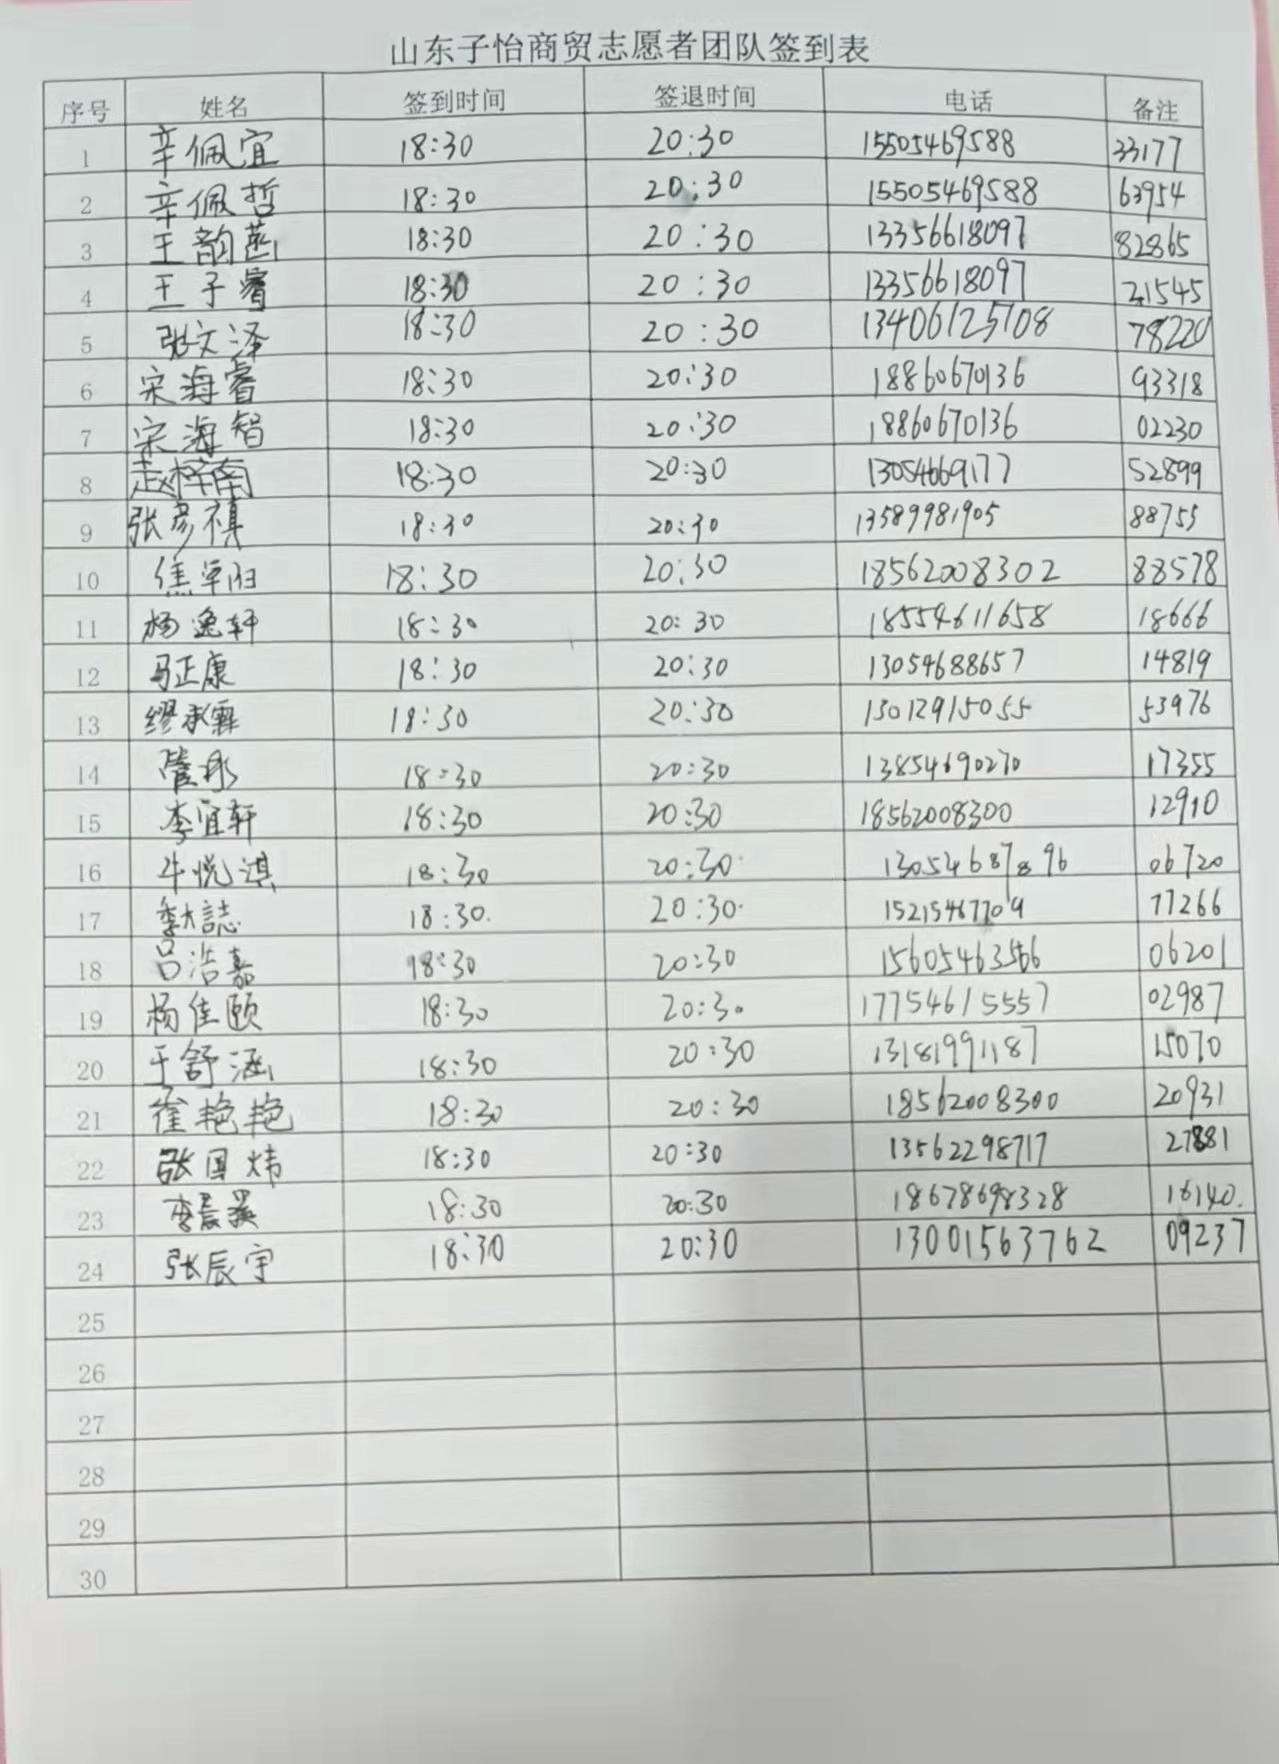 山东子怡商贸志愿者团队签到表
序号 姓名 签到时间 签退时间 电话 备注
1 辛佩宜 18:30 20:30 15505469588 33177
2 辛佩哲 18:30 20:30 15505469588 63954
3 王韵菡 18:30 20:30 13356618097 82865
4 王子睿 18:30 20:30 13356618097 21545
5 张文泽 18:30 20:30 13406125708 78220
6 宋海睿 18:30 20:30 18860670136 93318
7 宋海智 18:30 20:30 18860670136 02230
8 赵梓南 18:30 20:30 13054669177 52899
9 张彦祺 18:30 20:30 13589981905 88755
10 18:30 20:30 18562008302 88578
11 杨逸轩 18:30 20:30 18554611658 18666
12 马正康 18:30 20:30 13054688657 14819
13 缪承霖 18:30 20:30 13012915055 53976
14 管彤 18:30 20:30 13854690270 17355
15 李宜轩 18:30 20:30 18562008300 12910
16 牛悦淇 18:30 20:30 13054687896 06720
17 18:30 20:30 15215467709 77266
18 吕浩嘉 18:30 20:30 06201
19 杨佳颐 18:30 20:30 17754615557 02987
20 于舒涵 18:30 20:30 13181991187 15070
21 崔艳艳 18:30 20:30 18562008300 20931
22 张国炜 18:30 20:30 13562298717 27881
23 李晨溪 18:30 20:30 18678698328 16140.
24 张辰宇 18:30 20:30 13001563762 09237
25
26
27
28
29
30